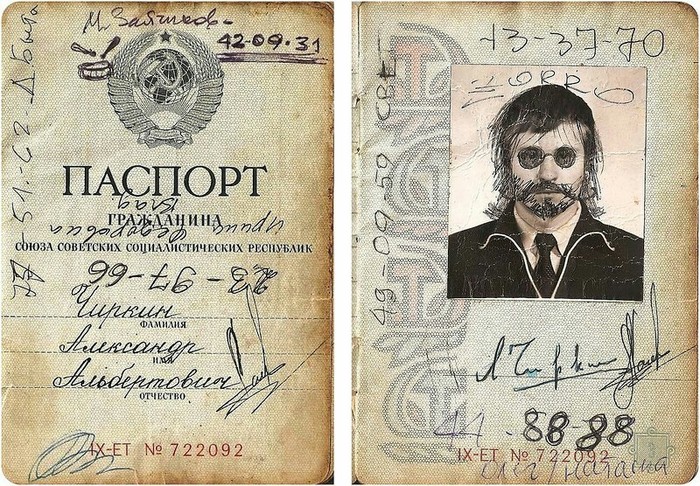 М. Зайчиков-
42-09-31
ПАСПОРТ
ГРАЖДАНИНА
СОЮЗА СОВЕТСКИХ СОЦИАЛИСТИЧЕСКИХ РЕСПУБЛИК
23-97-66
Чиркин
ФАМИЛИЯ
Александр
ИМЯ
Альбертович
ОТЧЕСТВО
IX-ЕТ № 722092
13-37-70
ZORRO
49-09-59
АЧиркин
41-88-88
IX-ЕТ № 722092
Олег/Наташа